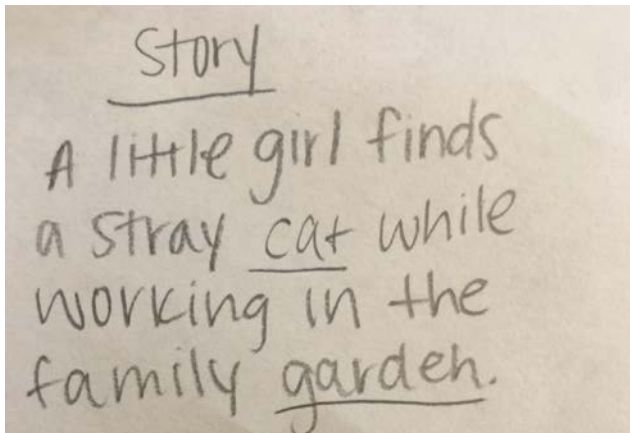 Story
A little girl finds
a stray cat while
working in the
family garden.